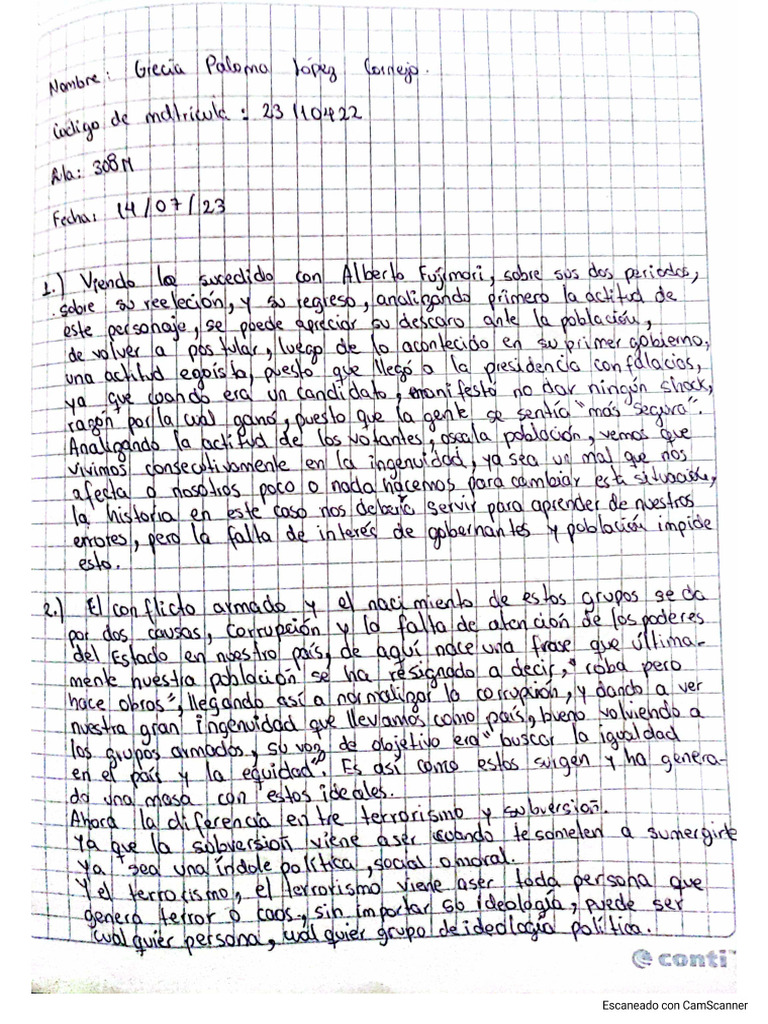 Nombre: Grecia Paloma López Cornejo.
Código de matrícula: 23110422
Ala: 308M
Fecha: 14/07/23
1.) Viendo lo sucedido con Alberto Fujimori, sobre sus dos periodos,
sobre su reeleción, y su regreso, analizando primero la actitud de
este personaje, se puede apreciar su descaro ante la población,
de volver a postular, luego de lo acontecido en su primer gobierno,
una actitud egoista, puesto que llegó a la presidencia con falacias,
ya que cuando era un candidato, manifestó no dar ningún shock,
razón por la cual ganó, puesto que la gente se sentía "más segura".
Analizando la actitud de los votantes, osea la población, vemos que
vivimos consecutivamente en la ingenuidad, ya sea un mal que nos
afecta a nosotros poco o nada hacemos para cambiar esta situación,
la historia en este caso nos debería servir para aprender de nuestros
errores, pero la falta de interés de gobernantes y población impide
esto.
2.) El conflicto armado y el nacimiento de estos grupos se da
por dos causas, corrupción y la falta de atención de los poderes
del Estado en nuestro país, de aquí nace una frase que última-
mente nuestra población se ha resignado a decir, "roba pero
hace obras", llegando así a normalizar la corrupción, y dando a ver
nuestra gran ingenuidad que llevamos como país, bueno volviendo a
los grupos armados, su voz de objetivo era "buscar la igualdad
en el país y la equidad". Es así como estos surgen y ha genera-
do una masa con estos ideales.
Ahora la diferencia entre terrorismo y subversión.
Ya que la subversión viene aser cuando te someten a sumergirte
ya sea una índole política, social o moral.
Y el terrorismo, el terrorismo viene aser toda persona que
genera terror o caos, sin importar su ideología, puede ser
cualquier persona, cualquier grupo de ideología política.
conti
Escaneado con CamScanner